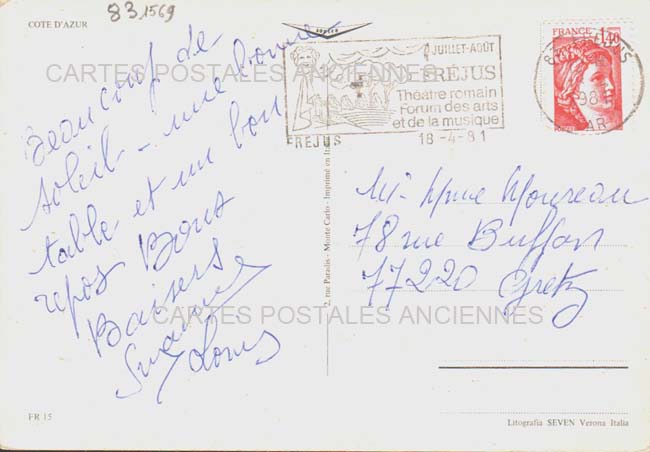 83 1569
COTE D'AZUR
JUILLET-AOÛT
FRÉJUS
Théatre romain
Forum des arts
et de la musique
FREJUS 18-4-81
FRANCE
1,40
CARTES POSTALES ANCIENNES
Beaucoup de
soleil - une bonne
table et un bon
repos Bons
Baisers
Suzanne
Louis
Mr Mme Moureau
78 rue Buffon
77220 Gretz
2, rue Paradis - Monte Carlo - Imprimé en It
CARTES POSTALES ANCIENNES
FR 15
Litografia SEVEN Verona Italia